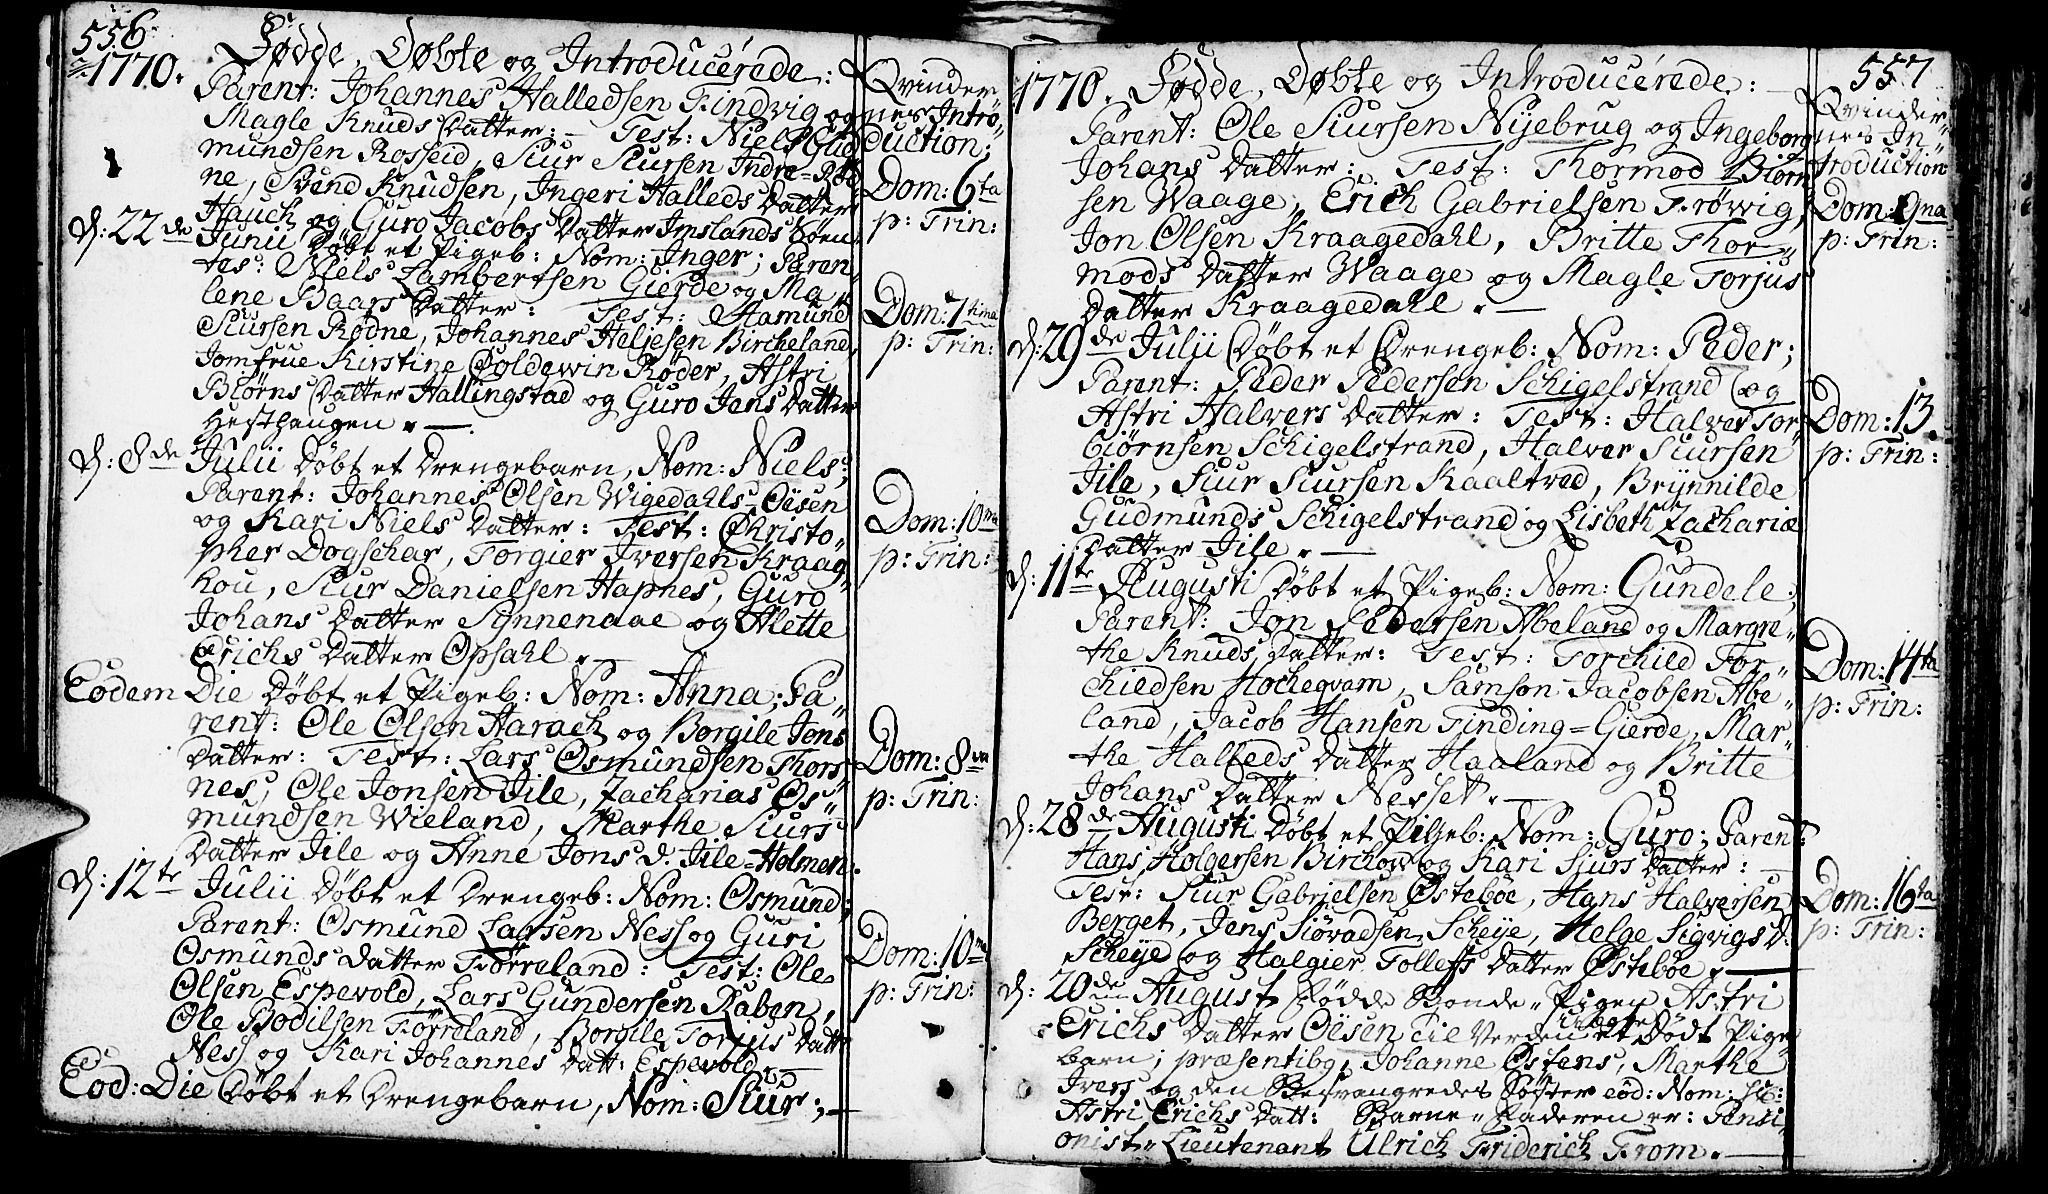 556.
1770. Fødde, Døbte og Introducérede:
Parent: Johannes Halledsen Findvig og
Magle Knuds Datter: – Test: Niels Gud
mundsen Rosseid, Siur Siursen Indre-Rød
ne, Svend Knudsen, Ingeri Halleds Datter
Hauch og Guro Jacobs Datter Imslands Søen
d: 22de Junii Døbt et Pigeb: Nom: Inger; Paren
tes: Niels Lambertsen Gierde og Ma
lene Baars Datter: Test: Amund
Siursen Rødne, Johannes Heljesen Bircheland,
Jomfrue Kirstine Coldewin Røder, Astri
Biørns Datter Hallingstad og Guro Jens Datter
Hesthaugen. —
d: 8de Julii Døbt et Drengebarn, Nom: Niels;
Parent: Johannes Olsen Wigedahls-Øisen
og Kari Niels Datter: Test: Christo
pher Dogschar, Torgier Iversen Kraag
kou, Siur Danielsen Hapnes, Guro
Johans Datter Synnenaae og Alette
Erichs Datter Opsahl. —
Eodem Die Døbt et Pigeb: Nom: Anna; Pa
rent: Ole Olsen Harach og Borgile Jens
Datter: Test: Lars Osmundsen Thors
nes, Ole Jonsen Jile, Zacharias Os
mundsen Wieland, Marthe Siurs
Datter Jile og Anne Jons D. Jile-Holmen.
d: 12te Julii Døbt et Drengeb: Nom: Osmund;
Parent: Osmund Larsen Ness og Guri
Osmunds Datter Førreland: Test: Ole
Olsen Espevold, Lars Gundersen Raben,
Ole Bodilsen Førreland, Borgile Torjus Datt:
Ness og Kari Johannes Datt: Espevold. —
Eod: Die Døbt et Drengebarn, Nom: Siur; —
Qvinder
nes Intro
duction:
Dom: 6ta
p: Trin:
Dom: 7tima
p: Trin:
Dom: 10ma
p: Trin:
Dom: 8va
p: Trin:
Dom: 10ma
p: Trin:
557
1770. Fødde, Døbte og Introducérede: —
Parent: Ole Siursen Nÿebrug og Ingeborg
Johans Datter: Test: Thormod Biørn
sen Waage, Erich Gabrielsen Frøvvig,
Jon Olsen Kraagedahl, Britte Thor
mods Datter Waage og Magle Torjus
Datter Kraagedahl. —
d: 29de Julii Døbt et Drengeb: Nom: Peder;
Parent: Peder Pedersen Schigelstrand og
Astri Halvers Datter: Test: Halver Tor
biørnsen Schigelstrand, Halver Siursen
Jile, Siur Siursen Kaaltved, Brynnilde
Gudmunds Schigelstrand og Lisbeth Zachariæ
Datter Jile. —
d: 11te Augusti Døbt et Pigeb: Nom: Gundele;
Parent: Jon Pedersen Abeland og Margre
the Knuds Datter: Test: Torchild Tor
childsen Hochegvam, Samson Jacobsen Abe
land, Jacob Hansen Finding-Gierde, Mar
the Halleds Datter Haaland og Britte
Johans Datter Nesset. —
d: 28de Augusti Døbt et Pigeb: Nom: Guro; Parent:
Hans Holgersen Birchow og Kari Siurs Datter: —
Test: Siur Gabrielsen Østebøe, Hans Halversen
Berget, Jens Siøvadsen Scheÿe, Helge Sigvigs D:
Scheÿe og Halgier Tollefs Datter Østebøe. —
d: 20de August Fødde Bonde-Pigen Astri
Erichs Datter Øisen til Verden et Dødt Pige
barn; præsentibg, Johanne Østens, Marthe
Ivers og den Besvangredes Søster eod: Nom: sc:
Astri Erichs Datt: Barne-Faderen er: Pensi
onist-Lieutenant Ulrich Friderich From. —
Qvinder
nes In
troduction
Dom: 9na
p: Trin:
Dom: 13
p: Trin:
Dom: 14ta
p: Trin:
Dom: 16ta
p: Trin: